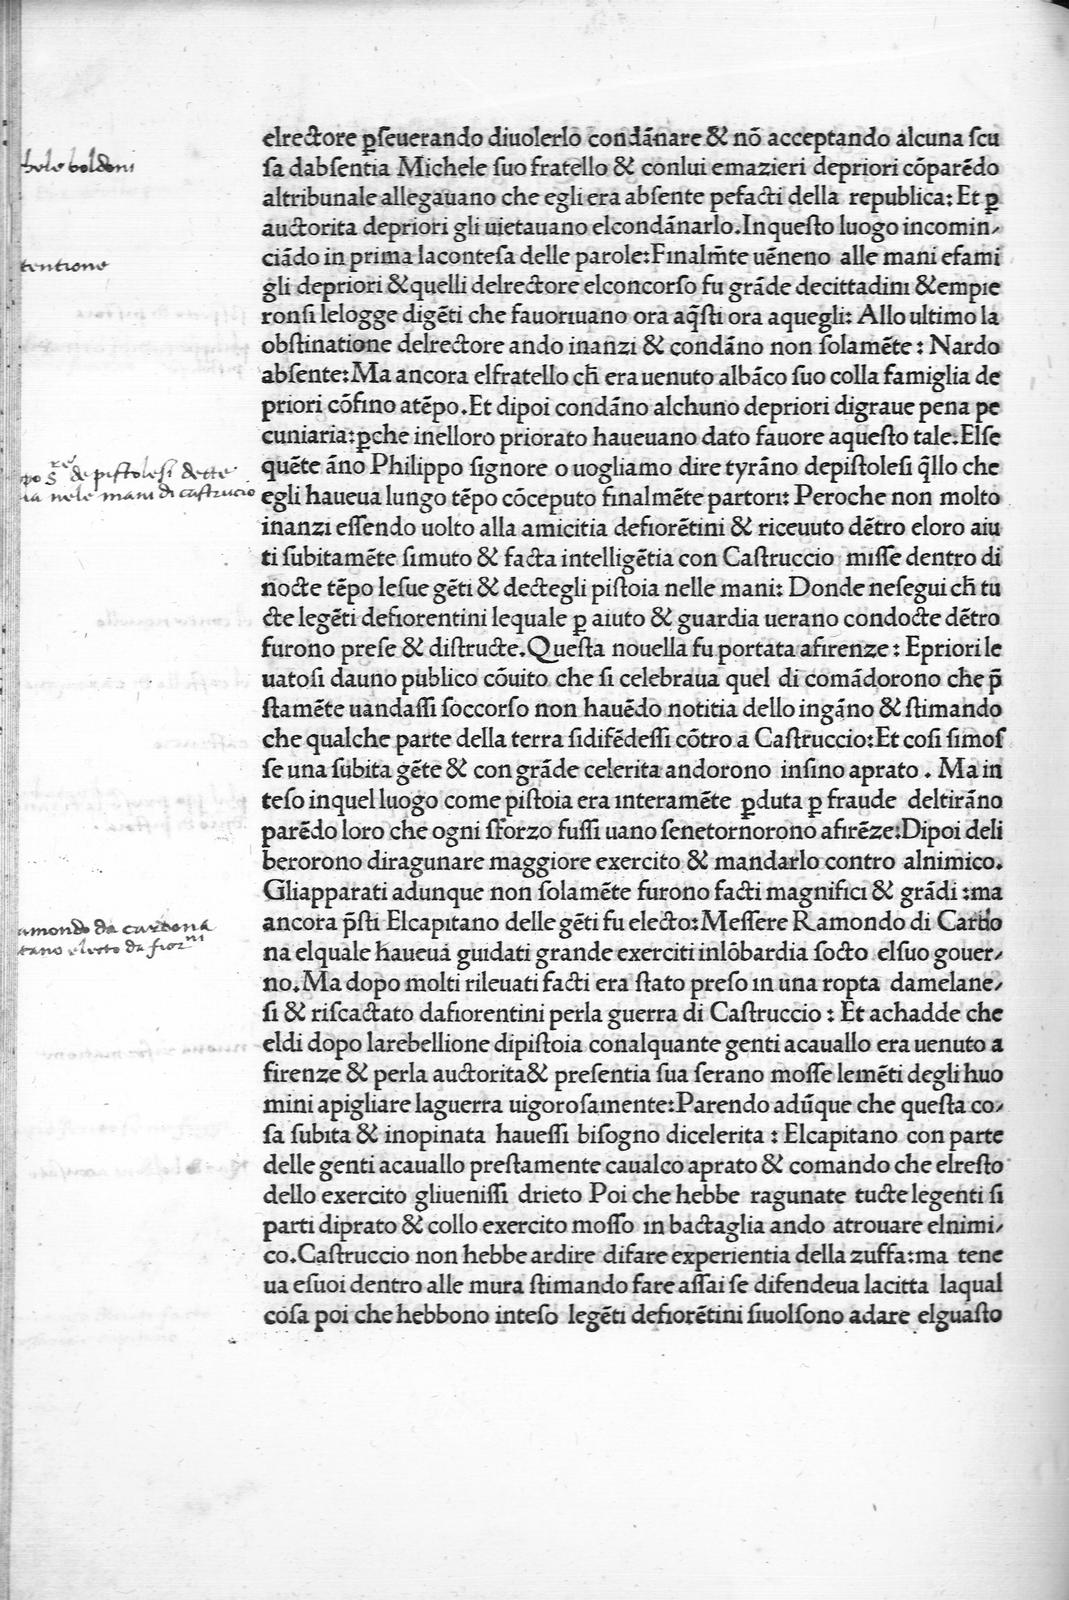 elrectore ꝑseuerando diuolerlo condãnare & nõ acceptando alcuna scu
sa dabsentia Michele suo fratello & conlui emazieri depriori cõparẽdo
altribunale allegauano che egli era absente pefacti della republica: Et ꝑ
auctorita depriori gli uietauano elcondãnarlo.Inquesto luogo incomin⸗
ciãdo in prima lacontesa delle parole:Finalm̃te uẽneno alle mani efami
gli depriori &quelli delrectore elconcorso fu grãde decittadini &empie
ronsi lelogge digẽti che fauoriuano ora aq̃sti ora aquegli: Allo ultimo la
obstinatione delrectore ando inanzi & condãno non solamẽte : Nardo
absente:Ma ancora elfratello ch̃ era uenuto albãco suo colla famiglia de
priori cõfino atẽpo.Et dipoi condãno alchuno depriori digraue pena pe
cuniaria:ꝑche inelloro priorato haueuano dato fauore aquesto tale.Else
quẽte ãno Philippo signore o uogliamo dire tyrãno depistolesi q̃llo che
egli haueua lungo tẽpo cõceputo finalmẽte partori: Peroche non molto
inanzi essendo uolto alla amicitia defiorẽtini & riceuuto dẽtro eloro aiu
ti subitamẽte simuto & facta intelligẽtia con Castruccio misse dentro di
nocte tẽpo lesue gẽti & dectegli pistoia nelle mani: Donde nesegui ch̃ tu
cte legẽti defiorentini lequale ꝑ aiuto & guardia uerano condocte dẽtro
furono prese & distructe.Questa nouella fu portata afirenze: Epriori le
uatosi dauno publico cõuito che si celebraua quel di comãdorono che p̃
stamẽte uandassi soccorso non hauẽdo notitia dello ingãno & stimando
che qualche parte della terra sidifẽdessi cõtro a Castruccio:Et cosi simos
se una subita gẽte & con grãde celerita andorono insino aprato . Ma in
teso inquel luogo come pistoia era interamẽte ꝑduta ꝑ fraude deltirãno
parẽdo loro che ogni sforzo fussi uano senetornorono afirẽze:Dipoi deli
berorono diragunare maggiore exercito & mandarlo contro alnimico.
Gliapparati adunque non solamẽte furono facti magnifici & grãdi :ma
ancora p̃sti Elcapitano delle gẽti fu electo:Messere Ramondo di Cardo
na elquale haueua guidati grande exerciti inlõbardia socto elsuo gouer⸗
no.Ma dopo molti rileuati facti era stato preso in una ropta damelane⸗
si & riscactato dafiorentini perla guerra di Castruccio : Et achadde che
eldi dopo larebellione dipistoia conalquante genti acauallo era uenuto a
firenze & perla auctorita& presentia sua serano mosse lemẽti degli huo
mini apigliare laguerra uigorosamente:Parendo adũque che questa co⸗
sa subita & inopinata hauessi bisogno dicelerita : Elcapitano con parte
delle genti acauallo prestamente caualco aprato & comando che elresto
dello exercito gliuenissi drieto Poi che hebbe ragunate tucte legenti si
parti diprato & collo exercito mosso in bactaglia ando atrouare elnimi⸗
co.Castruccio non hebbe ardire difare experientia della zuffa:ma tene
ua esuoi dentro alle mura stimando fare assai se difendeua lacitta laqual
cosa poi che hebbono inteso legẽti defiorẽtini siuolsono adare elguasto
hele boldoni
tentione
po s.re de pistolesi dette
ia nele mani di castrucio
amondo da cardona
tano electo da fior.ni